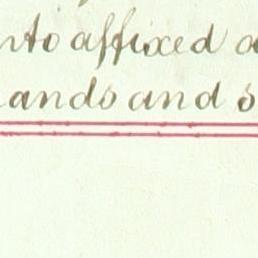 nto affixed a
ands and s